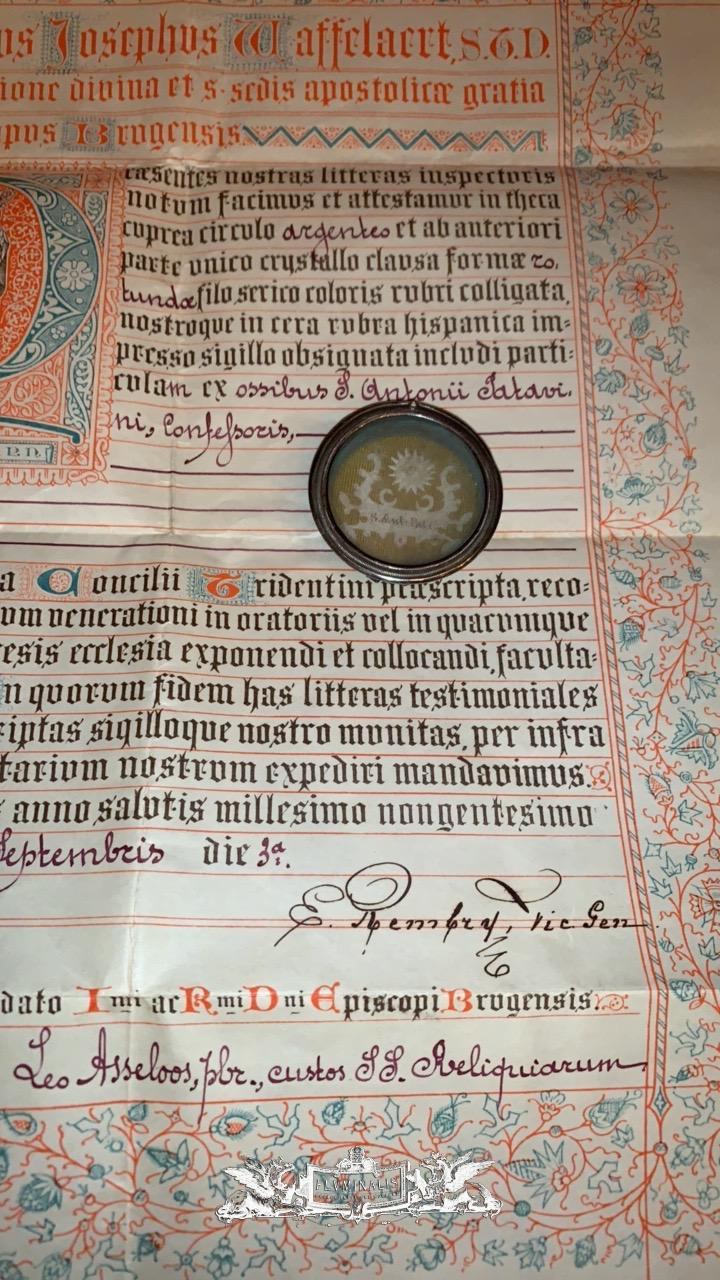 us Josephus Waffelaert, S.T.D.
ione divina et s. sedis apostolicæ gratia
opus Brugensis
ræsentes nostras litteras inspecturis
notum facimus et attestamur in theca
cuprea circulo argenteo et ab anteriori
parte unico crystallo clausa formæ ro,
tundæ filo serico coloris rubri colligata,
nostroque in cera rubra hispanica im=
presso sigillo obsignata includi parti=
culam ex ossibus S. Antonii Patavi,
ni, Confessoris,
S. Ant. Pat. C.
a Concilii Tridentini præscripta, reco=
um venerationi in oratoriis vel in quacumque
cesis ecclesia exponendi et collocandi, faculta=
n quorum fidem has litteras testimoniales
riptas sigilloque nostro munitas, per infra
tarium nostrum expediri mandavimus.
anno salutis millesimo nongentesimo
Septembris die 3ª.
E. Rembry, Vic Gen
dato Imi ac Rmi Dni Episcopi Brugensis.
Leo Asseloos, pbr., custos SS. Reliquiarum
FLUMINALIS